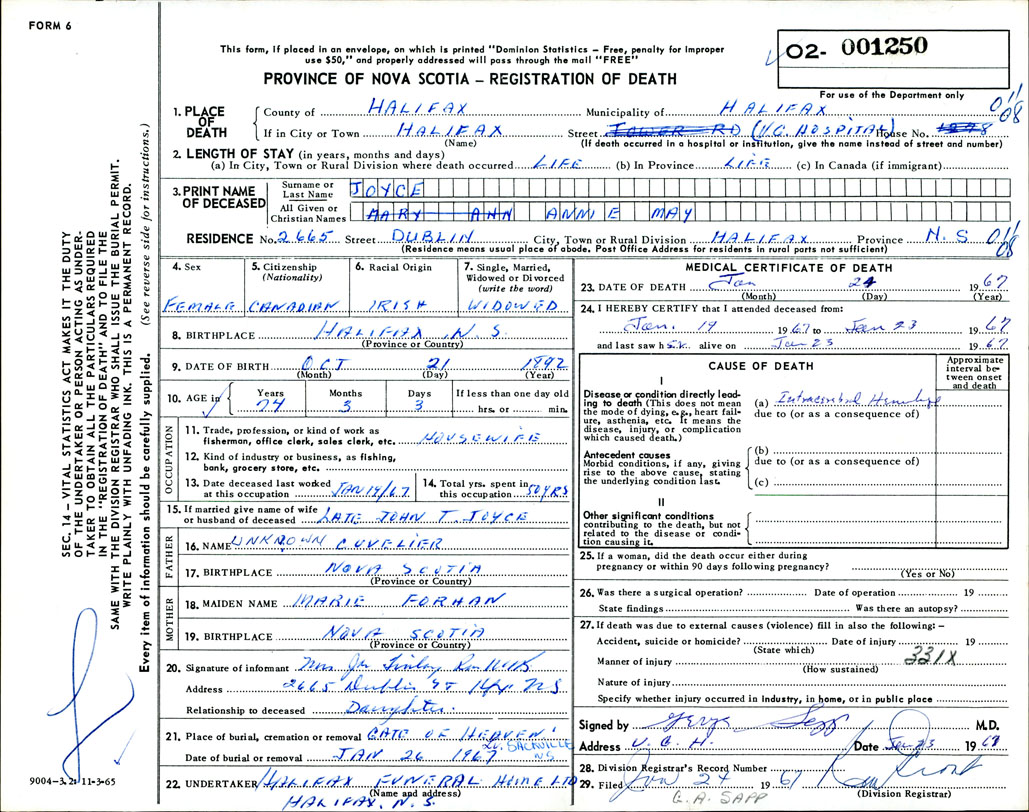 FORM 6
This form, if placed in an envelope, on which is printed "Dominion Statistics – Free, penalty for improper
use $50," and properly addressed will pass through the mail "FREE"
PROVINCE OF NOVA SCOTIA – REGISTRATION OF DEATH
O2- 001250
For use of the Department only
1. PLACE OF DEATH
County of HALIFAX Municipality of HALIFAX
011
08
If in City or Town HALIFAX Street TOWER RD (V.G. HOSPITAL) House No.
(Name) (If death occurred in a hospital or institution, give the name instead of street and number)
2. LENGTH OF STAY (in years, months and days)
(a) In City, Town or Rural Division where death occurred LIFE (b) In Province LIFE (c) In Canada (if immigrant)
3. PRINT NAME OF DECEASED
Surname or Last Name JOYCE
All Given or Christian Names MARY ANN ANNIE MAY
RESIDENCE No. 2665 Street DUBLIN City, Town or Rural Division HALIFAX Province N.S
011
08
(Residence means usual place of abode. Post Office Address for residents in rural parts not sufficient)
4. Sex
FEMALE
5. Citizenship (Nationality)
CANADIAN
6. Racial Origin
IRISH
7. Single, Married, Widowed or Divorced (write the word)
WIDOWED
8. BIRTHPLACE HALIFAX, N.S.
(Province or Country)
9. DATE OF BIRTH OCT 21 1892
(Month) (Day) (Year)
10. AGE in Years 74 Months 3 Days 3 If less than one day old hrs. or min.
OCCUPATION
11. Trade, profession, or kind of work as
fisherman, office clerk, sales clerk, etc. HOUSEWIFE
12. Kind of industry or business, as fishing,
bank, grocery store, etc.
13. Date deceased last worked
at this occupation JAN 19/67
14. Total yrs. spent in
this occupation 50 YRS
15. If married give name of wife
or husband of deceased LATE JOHN T. JOYCE
FATHER
16. NAME UNKNOWN CUVELIER
17. BIRTHPLACE NOVA SCOTIA
(Province or Country)
MOTHER
18. MAIDEN NAME MARIE FORHAN
19. BIRTHPLACE NOVA SCOTIA
(Province or Country)
20. Signature of informant Mrs
Address 2665 Dublin St Hfx NS
Relationship to deceased Daughter
21. Place of burial, cremation or removal GATE OF HEAVEN
SACKVILLE
N.S.
Date of burial or removal JAN 26 1967
22. UNDERTAKER HALIFAX FUNERAL HOME LTD
(Name and address)
HALIFAX, N.S.
MEDICAL CERTIFICATE OF DEATH
23. DATE OF DEATH Jan 24 1967
(Month) (Day) (Year)
24. I HEREBY CERTIFY that I attended deceased from:
Jan. 19 1967 to Jan 23 1967
and last saw her alive on Jan 23 1967
CAUSE OF DEATH
Approximate interval between onset and death
I
Disease or condition directly leading to death (This does not mean
the mode of dying, e.g., heart failure, asthenia, etc. It means the
disease, injury, or complication
which caused death.)
(a) Intracerebral Hemorrhage
due to (or as a consequence of)
Antecedent causes
Morbid conditions, if any, giving
rise to the above cause, stating
the underlying condition last.
(b)
due to (or as a consequence of)
(c)
II
Other significant conditions
contributing to the death, but not
related to the disease or condition causing it.
25. If a woman, did the death occur either during
pregnancy or within 90 days following pregnancy?
(Yes or No)
26. Was there a surgical operation? Date of operation 19
State findings Was there an autopsy?
27. If death was due to external causes (violence) fill in also the following: –
Accident, suicide or homicide? Date of injury 19
(State which)
Manner of injury 331X
(How sustained)
Nature of injury
Specify whether injury occurred in industry, in home, or in public place
Signed by M.D.
Address V.G.H. Date Jan 23 1967
28. Division Registrar's Record Number
29. Filed Jan 24 1967
(Division Registrar)
G.A. SAPP
SEC. 14 – VITAL STATISTICS ACT MAKES IT THE DUTY
OF THE UNDERTAKER OR PERSON ACTING AS UNDERTAKER TO OBTAIN ALL THE PARTICULARS REQUIRED
IN THE "REGISTRATION OF DEATH" AND TO FILE THE
SAME WITH THE DIVISION REGISTRAR WHO SHALL ISSUE THE BURIAL PERMIT.
WRITE PLAINLY WITH UNFADING INK. THIS IS A PERMANENT RECORD.
Every item of information should be carefully supplied. (See reverse side for instructions.)
9004-3.21 11-3-65